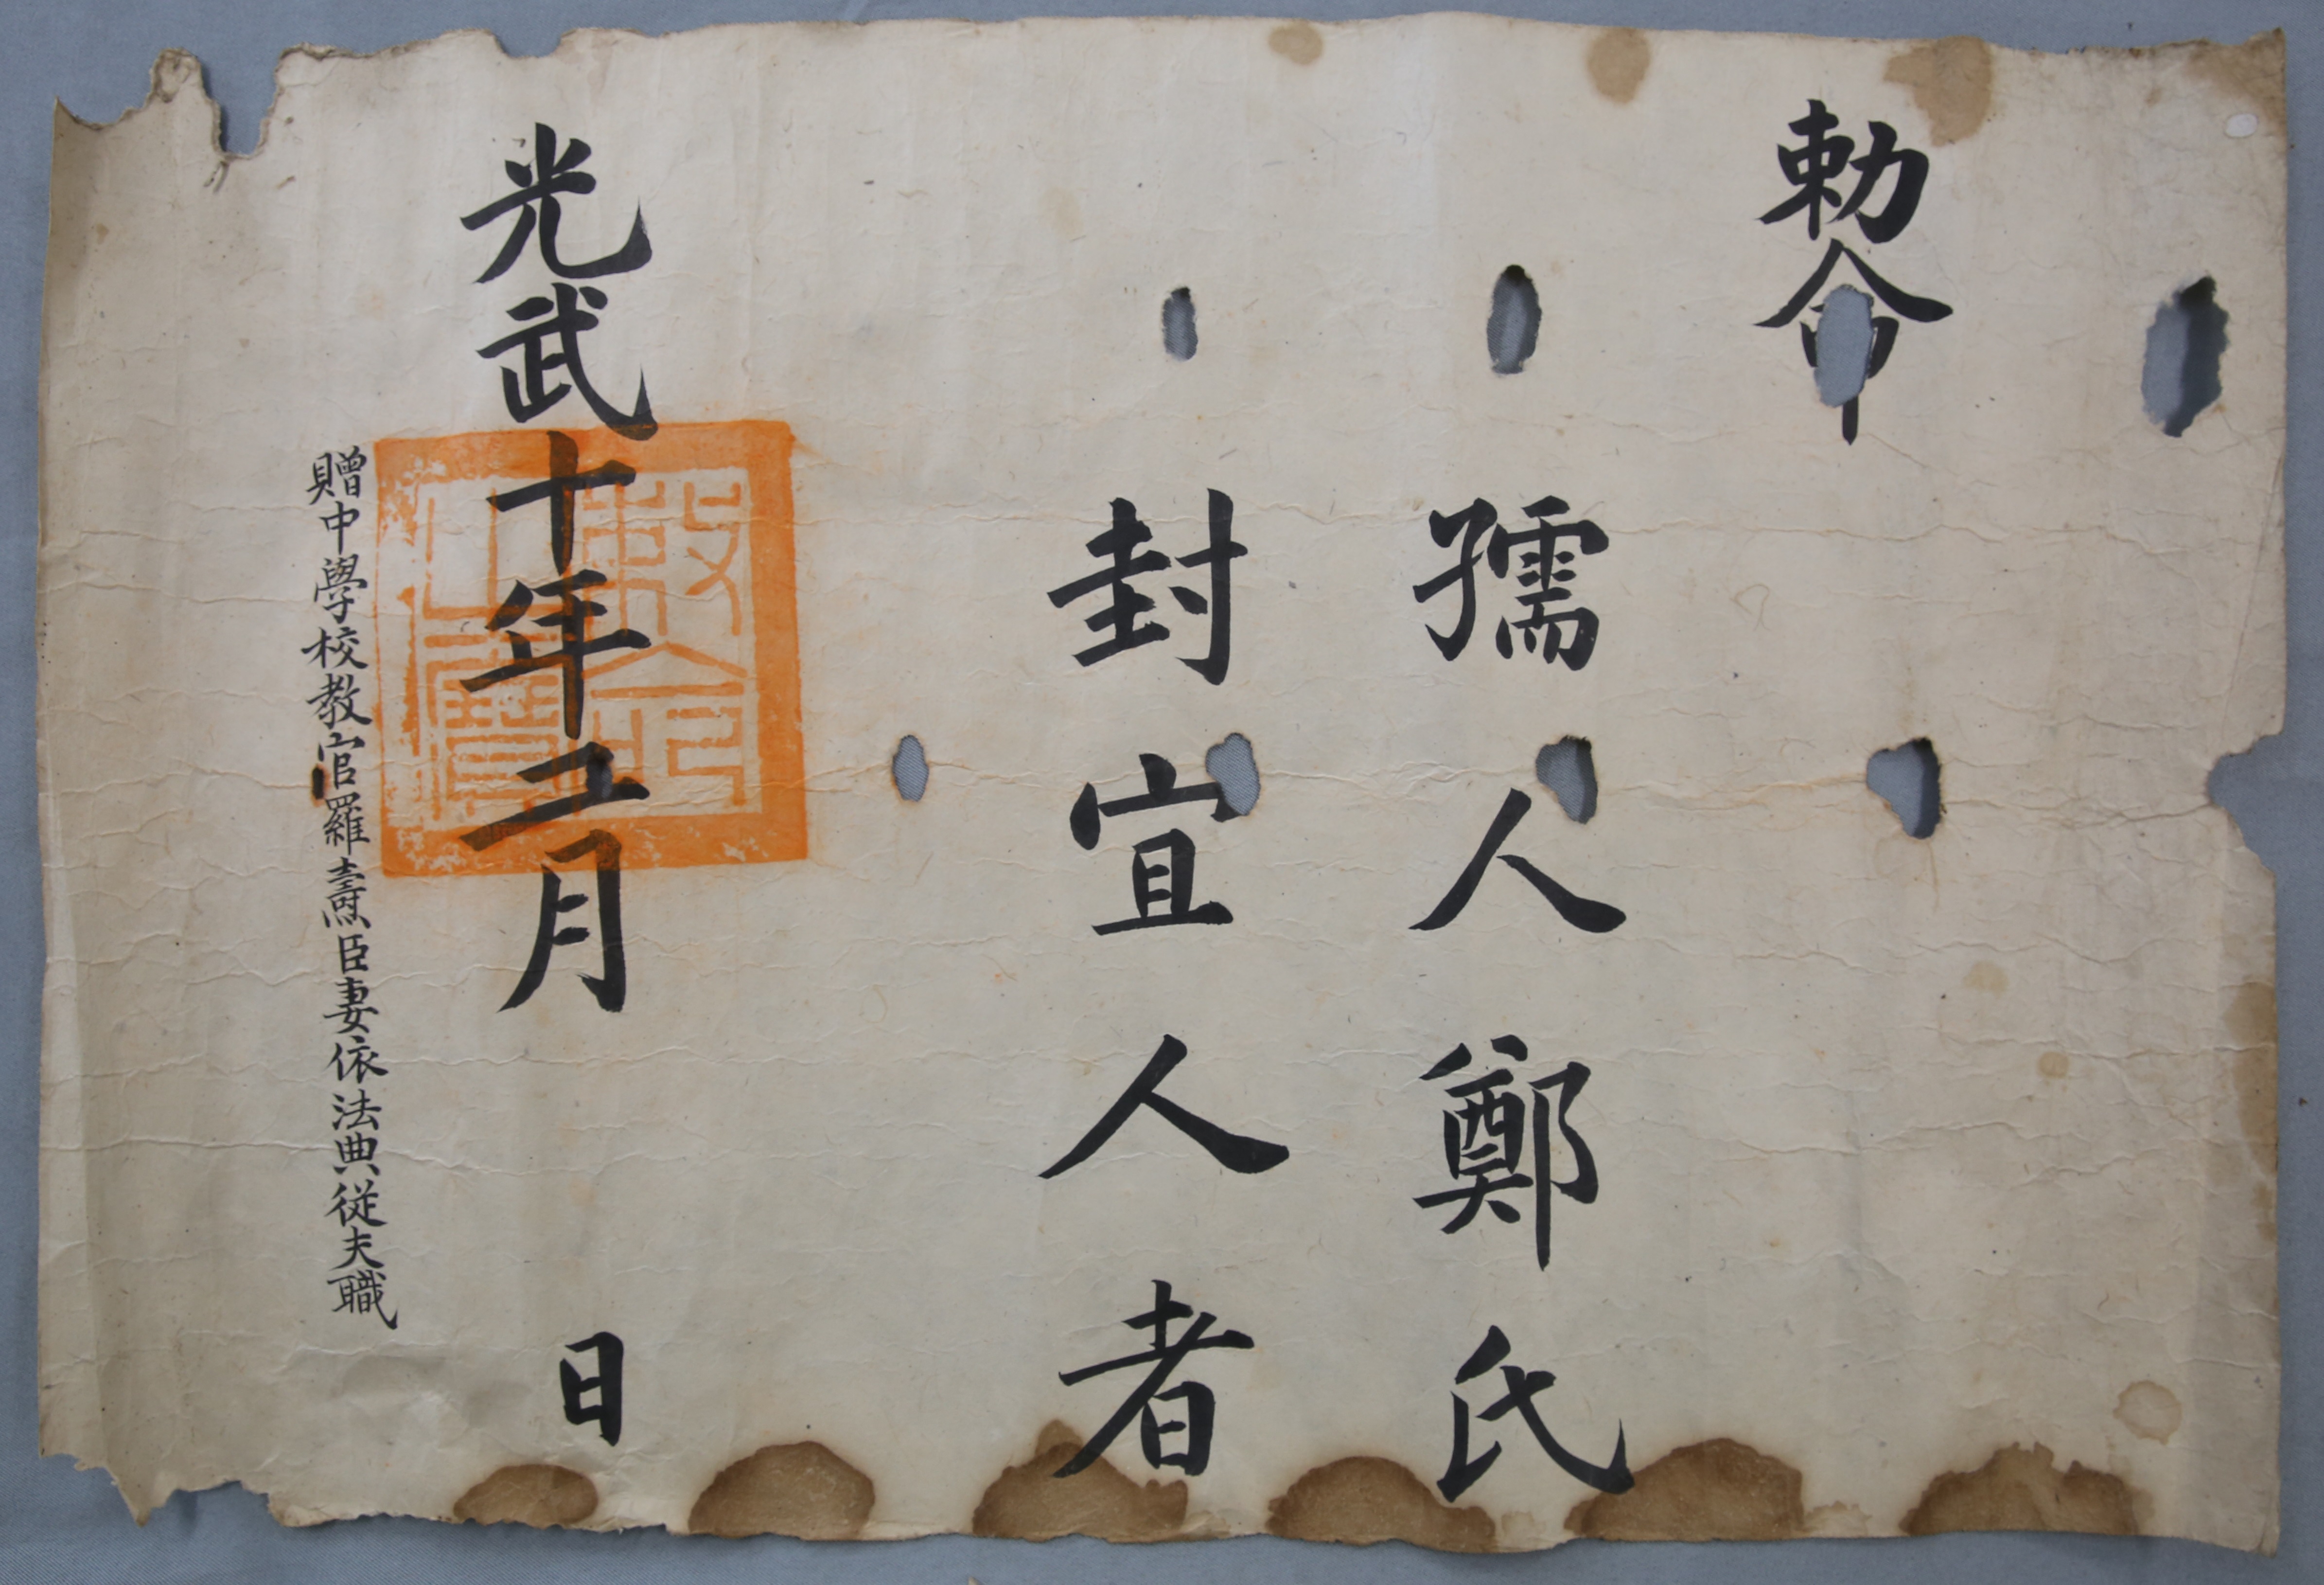 勅命
孺人鄭氏
封宜人者
光武十年二月　日
贈中學校教官羅燾臣妻依法典從夫職
敕命之寶